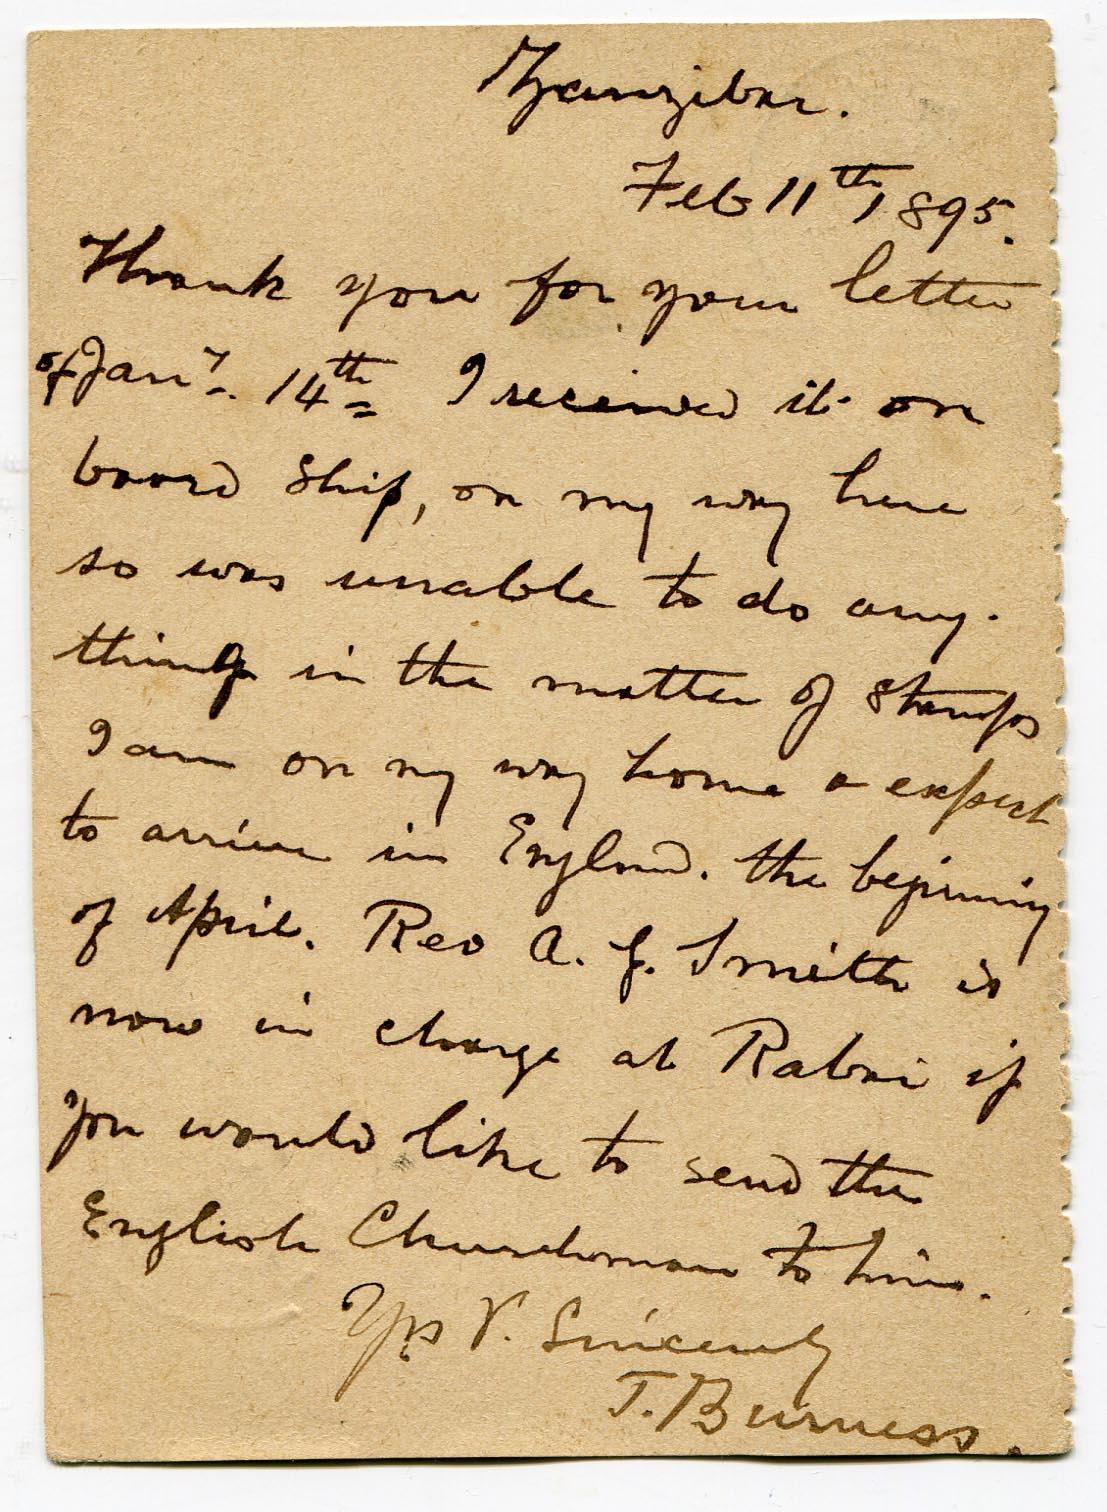 Zanzibar.
Feb 11th, 1895.
Thank you for your letter
of Jany. 14th I received it on
board ship, on my way here
so was unable to do any-
thing in the matter of stamps
I am on my way home & expect
to arrive in England. the beginning
of April. Rev A. G. Smith is
now in charge at Rabai if
you would like to send the
English Churchman to him.
Yrs V. Sincerely
T. Burness.